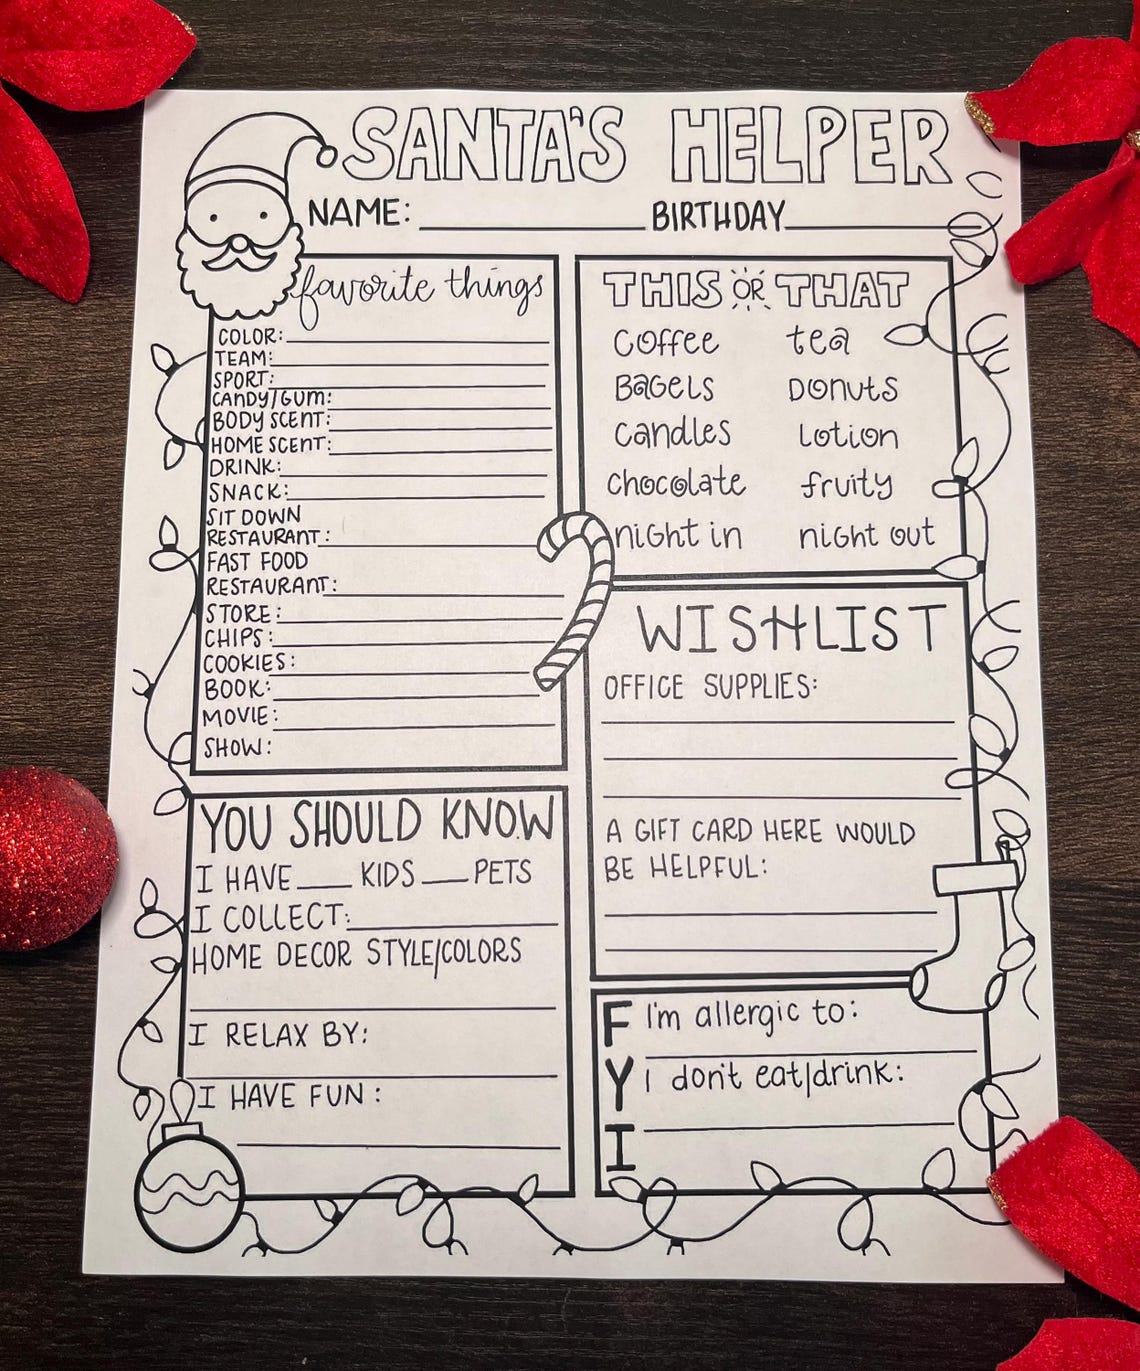 SANTA'S HELPER
NAME: BIRTHDAY
favorite things
COLOR:
TEAM:
SPORT:
CANDY/GUM:
BODY SCENT:
HOME SCENT:
DRINK:
SNACK:
SIT DOWN
RESTAURANT:
FAST FOOD
RESTAURANT:
STORE:
CHIPS:
COOKIES:
BOOK:
MOVIE:
SHOW:
YOU SHOULD KNOW
I HAVE ____ KIDS ____ PETS
I COLLECT:
HOME DECOR STYLE/COLORS
I RELAX BY:
I HAVE FUN:
THIS OR THAT
coffee tea
Bagels Donuts
candles Lotion
chocolate fruity
night in night out
WISHLIST
OFFICE SUPPLIES:
A GIFT CARD HERE WOULD
BE HELPFUL:
FYI
I'm allergic to:
I don't eat/drink: